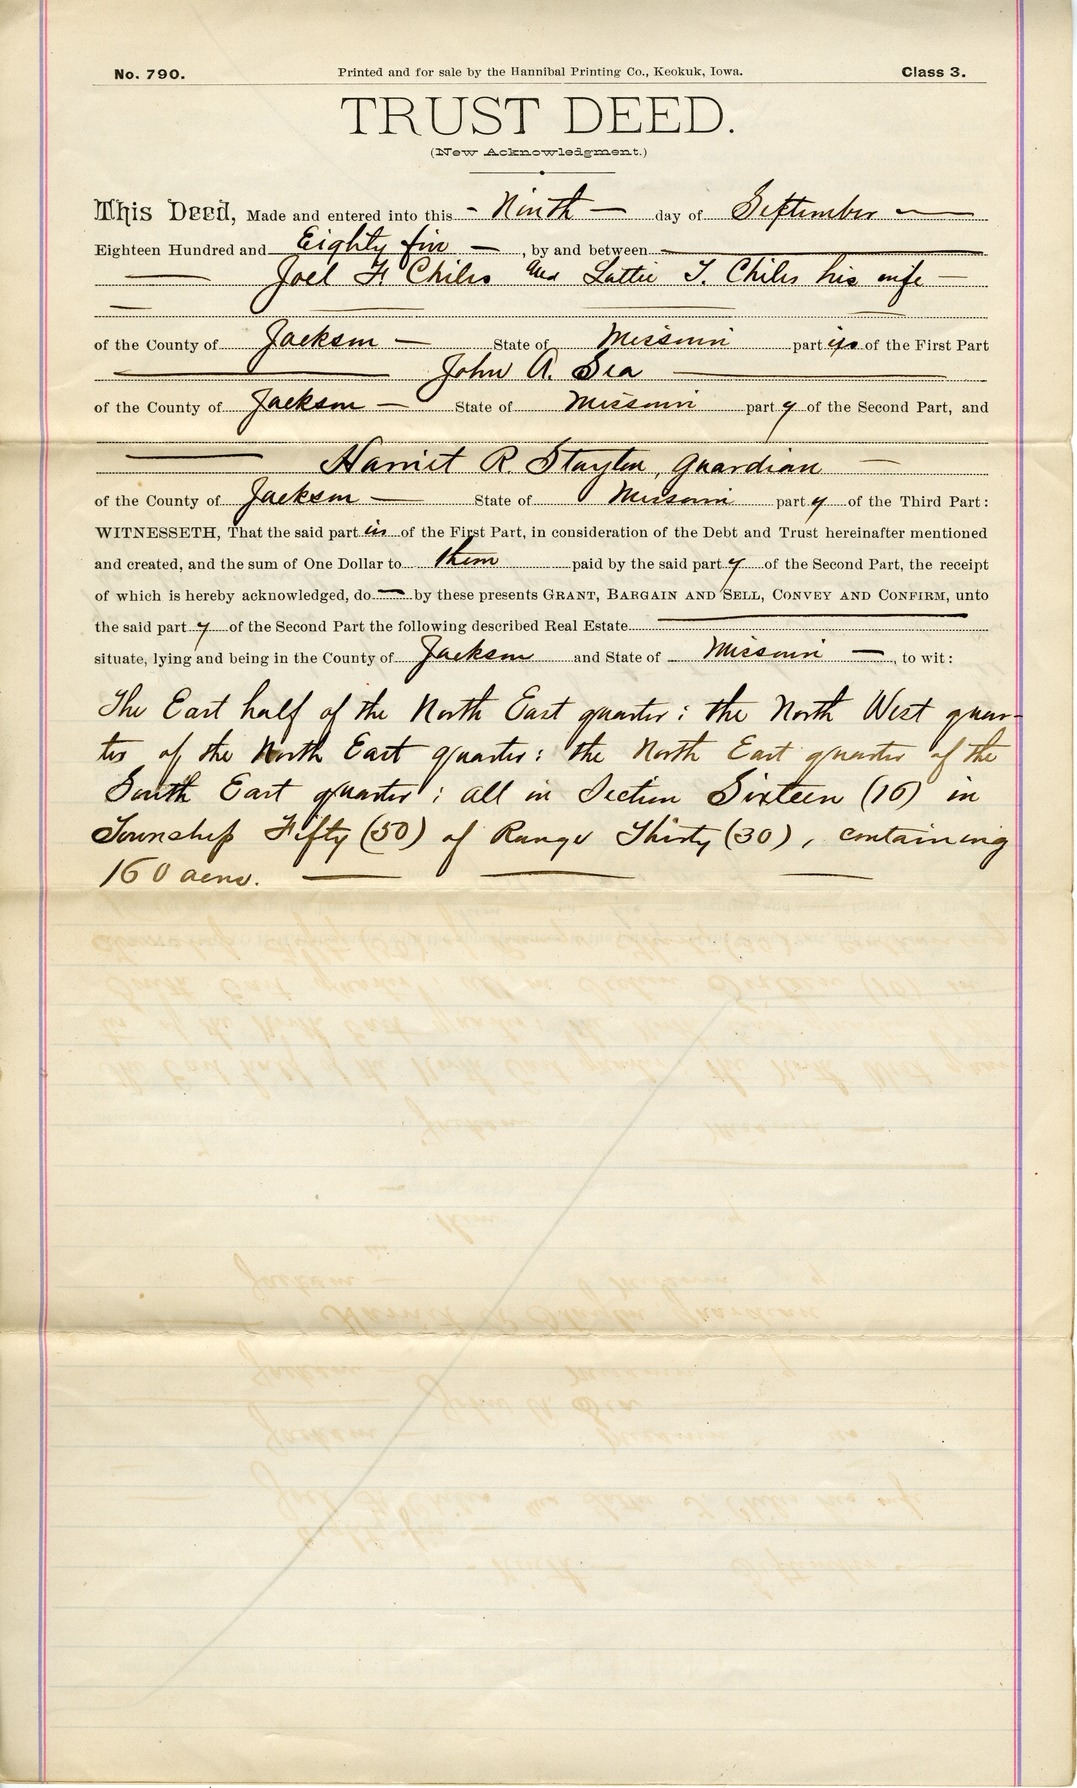 No. 790. Printed and for sale by the Hannibal Printing Co., Keokuk, Iowa. Class 3.
TRUST DEED.
(New Acknowledgment.)
This Deed, Made and entered into this - Ninth — day of September —
Eighteen Hundred and Eighty five — , by and between
Joel F. Chiles and Lattie T. Chiles his wife —
of the County of Jackson — State of Missouri parties of the First Part
John A. Sea
of the County of Jackson — State of Missouri party of the Second Part, and
Harriet R. Stayton, Guardian —
of the County of Jackson — State of Missouri party of the Third Part:
WITNESSETH, That the said part ies of the First Part, in consideration of the Debt and Trust hereinafter mentioned
and created, and the sum of One Dollar to them paid by the said part y of the Second Part, the receipt
of which is hereby acknowledged, do — by these presents GRANT, BARGAIN AND SELL, CONVEY AND CONFIRM, unto
the said part y of the Second Part the following described Real Estate
situate, lying and being in the County of Jackson and State of Missouri — , to wit:
The East half of the North East quarter: the North West quar-
ter of the North East quarter: the North East quarter of the
South East quarter: all in Section Sixteen (16) in
Township Fifty (50) of Range Thirty (30), containing
160 acres.